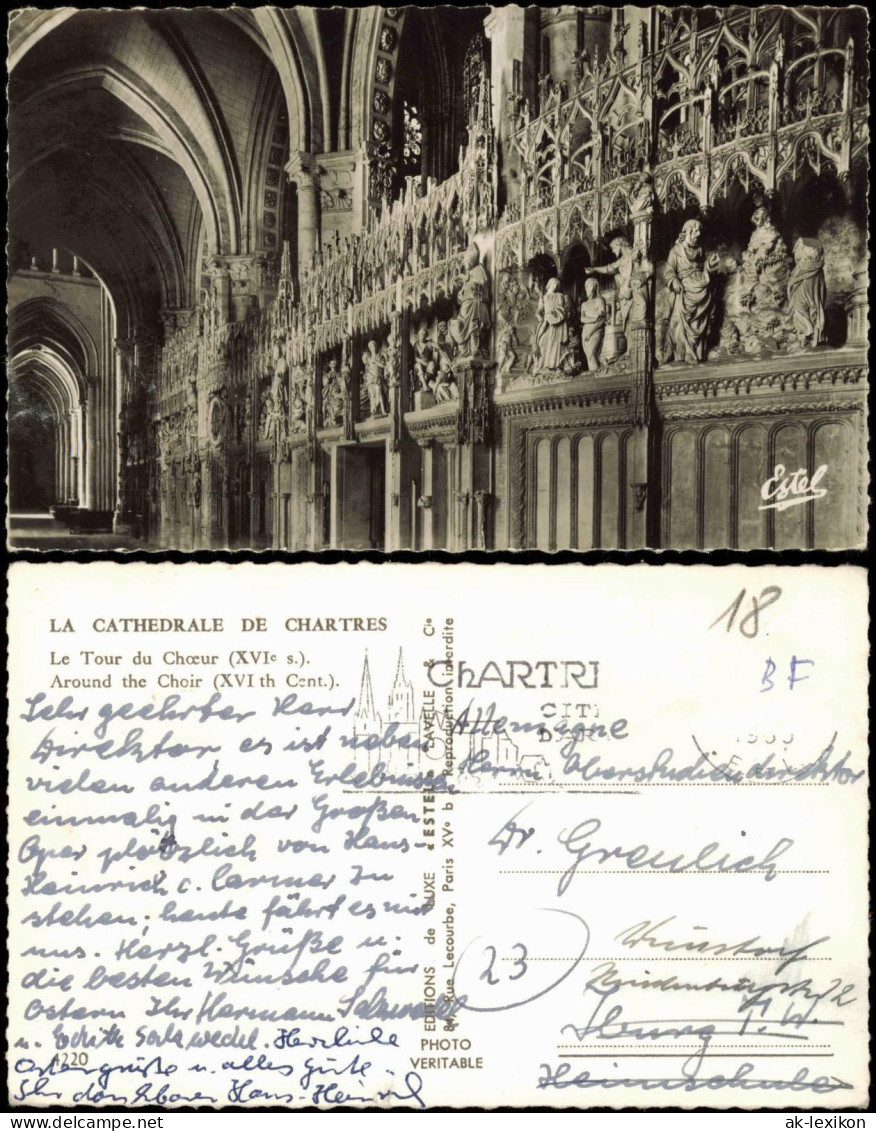 Estel
LA CATHEDRALE DE CHARTRES
Le Tour du Chœur (XVIe s.).
Around the Choir (XVI th Cent.).
Sehr geehrter Herr
Direktor, es ist neben
vielen anderen Erlebnissen
einmalig in der Großen
Oper plötzlich von Hans-
Heinrich c. Carmer zu
stehen; heute fährt er mit
uns. Herzl. Grüße u.
die besten Wünsche für
Ostern Ihr Hermann Salzwedel
u. Edith Salzwedel. Herzliche
Ostergrüße u. alles Gute.
Ihr dankbarer Hans-Heinrich
4220
EDITIONS de LUXE « ESTEL » LAVELLE & Cie
Rue Lecourbe, Paris XVe Reproduction interdite
PHOTO
VERITABLE
CHARTRE
CITÉ
18.
BF
Allemagne
Herrn Oberstudiendirektor
Dr. Greulich
23
Wunstorf
Hindenburgstr. 2
Iburg T. W.
Heimschule
ak-lexikon
ak-lexikon.com